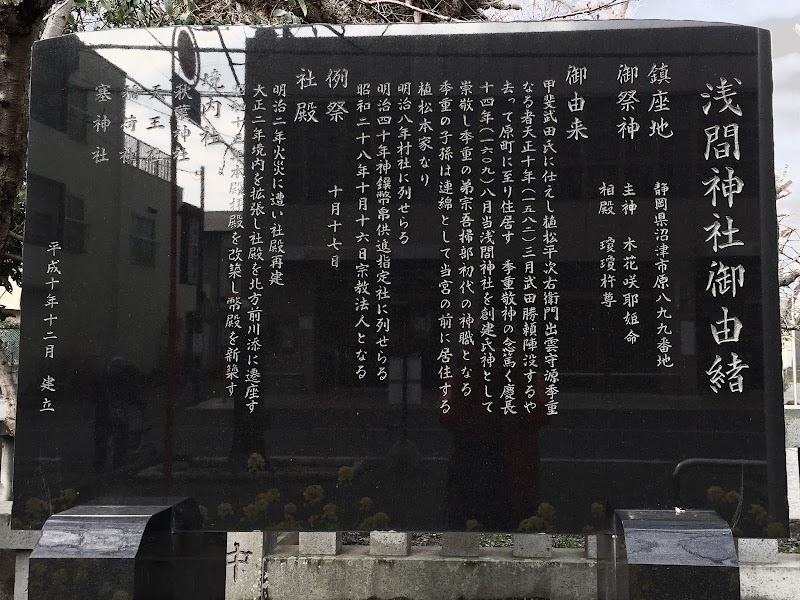 浅間神社御由緒
鎮座地　静岡県沼津市原八九九番地
御祭神　主神　木花咲耶姫命
相殿　瓊瓊杵尊
御由来
甲斐武田氏に仕えし植松平次右衛門出雲守源季重
なる者天正十年（一五八二）三月武田勝頼陣没するや
去って原町に至り住居す　季重敬神の念篤く慶長
十四年（一六〇九）八月当浅間神社を創建氏神として
崇敬し季重の弟宗吾掃部初代の神職となる
季重の子孫は連綿として当宮の前に居住する
植松本家なり
明治八年村社に列せらる
明治四十年神饌幣帛供進指定社に列せらる
昭和二十八年十月十六日宗教法人となる
例祭　十月十七日
社殿
明治二年火災に遭い社殿再建
大正二年境内を拡張し社殿を北方前川添に遷座す
本殿拝殿を改築し幣殿を新築す
境内社
秋葉神社
天王
稲荷
塞神社
平成十年十二月　建立